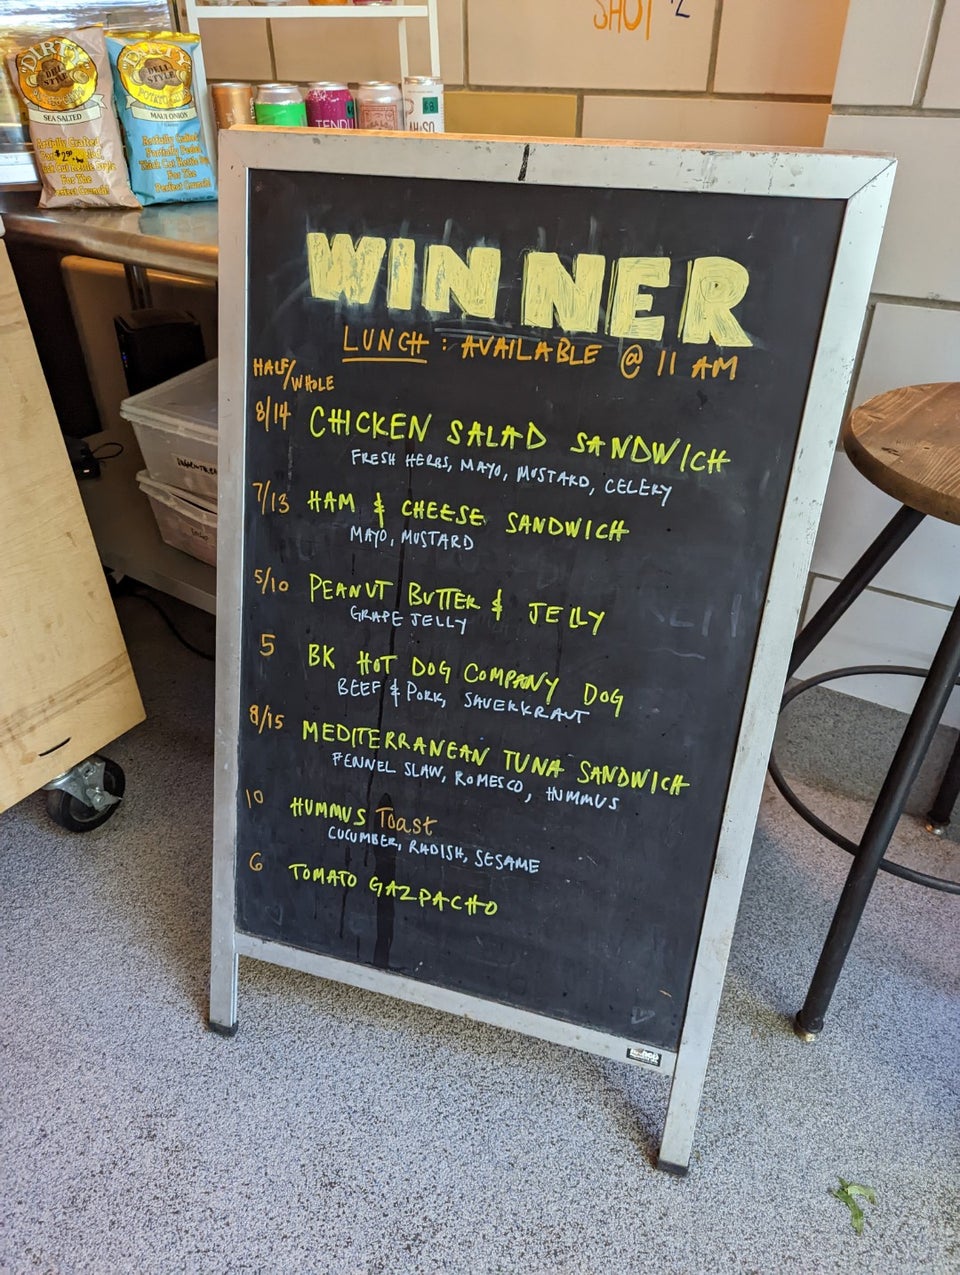 SHOT 2
DIRTY
DELI STYLE
SEA SALTED
DIRTY
DELI STYLE
POTATO CHIPS
MAUI ONION
For The
Perfect Crunch!
TENDU
AH-SO
WINNER
LUNCH : AVAILABLE @ 11 AM
HALF/WHOLE
8/14 CHICKEN SALAD SANDWICH
FRESH HERBS, MAYO, MUSTARD, CELERY
7/13 HAM & CHEESE SANDWICH
MAYO, MUSTARD
5/10 PEANUT BUTTER & JELLY
GRAPE JELLY
5 BK HOT DOG COMPANY DOG
BEEF & PORK, SAUERKRAUT
8/15 MEDITERRANEAN TUNA SANDWICH
FENNEL SLAW, ROMESCO, HUMMUS
10 HUMMUS Toast
CUCUMBER, RADISH, SESAME
6 TOMATO GAZPACHO